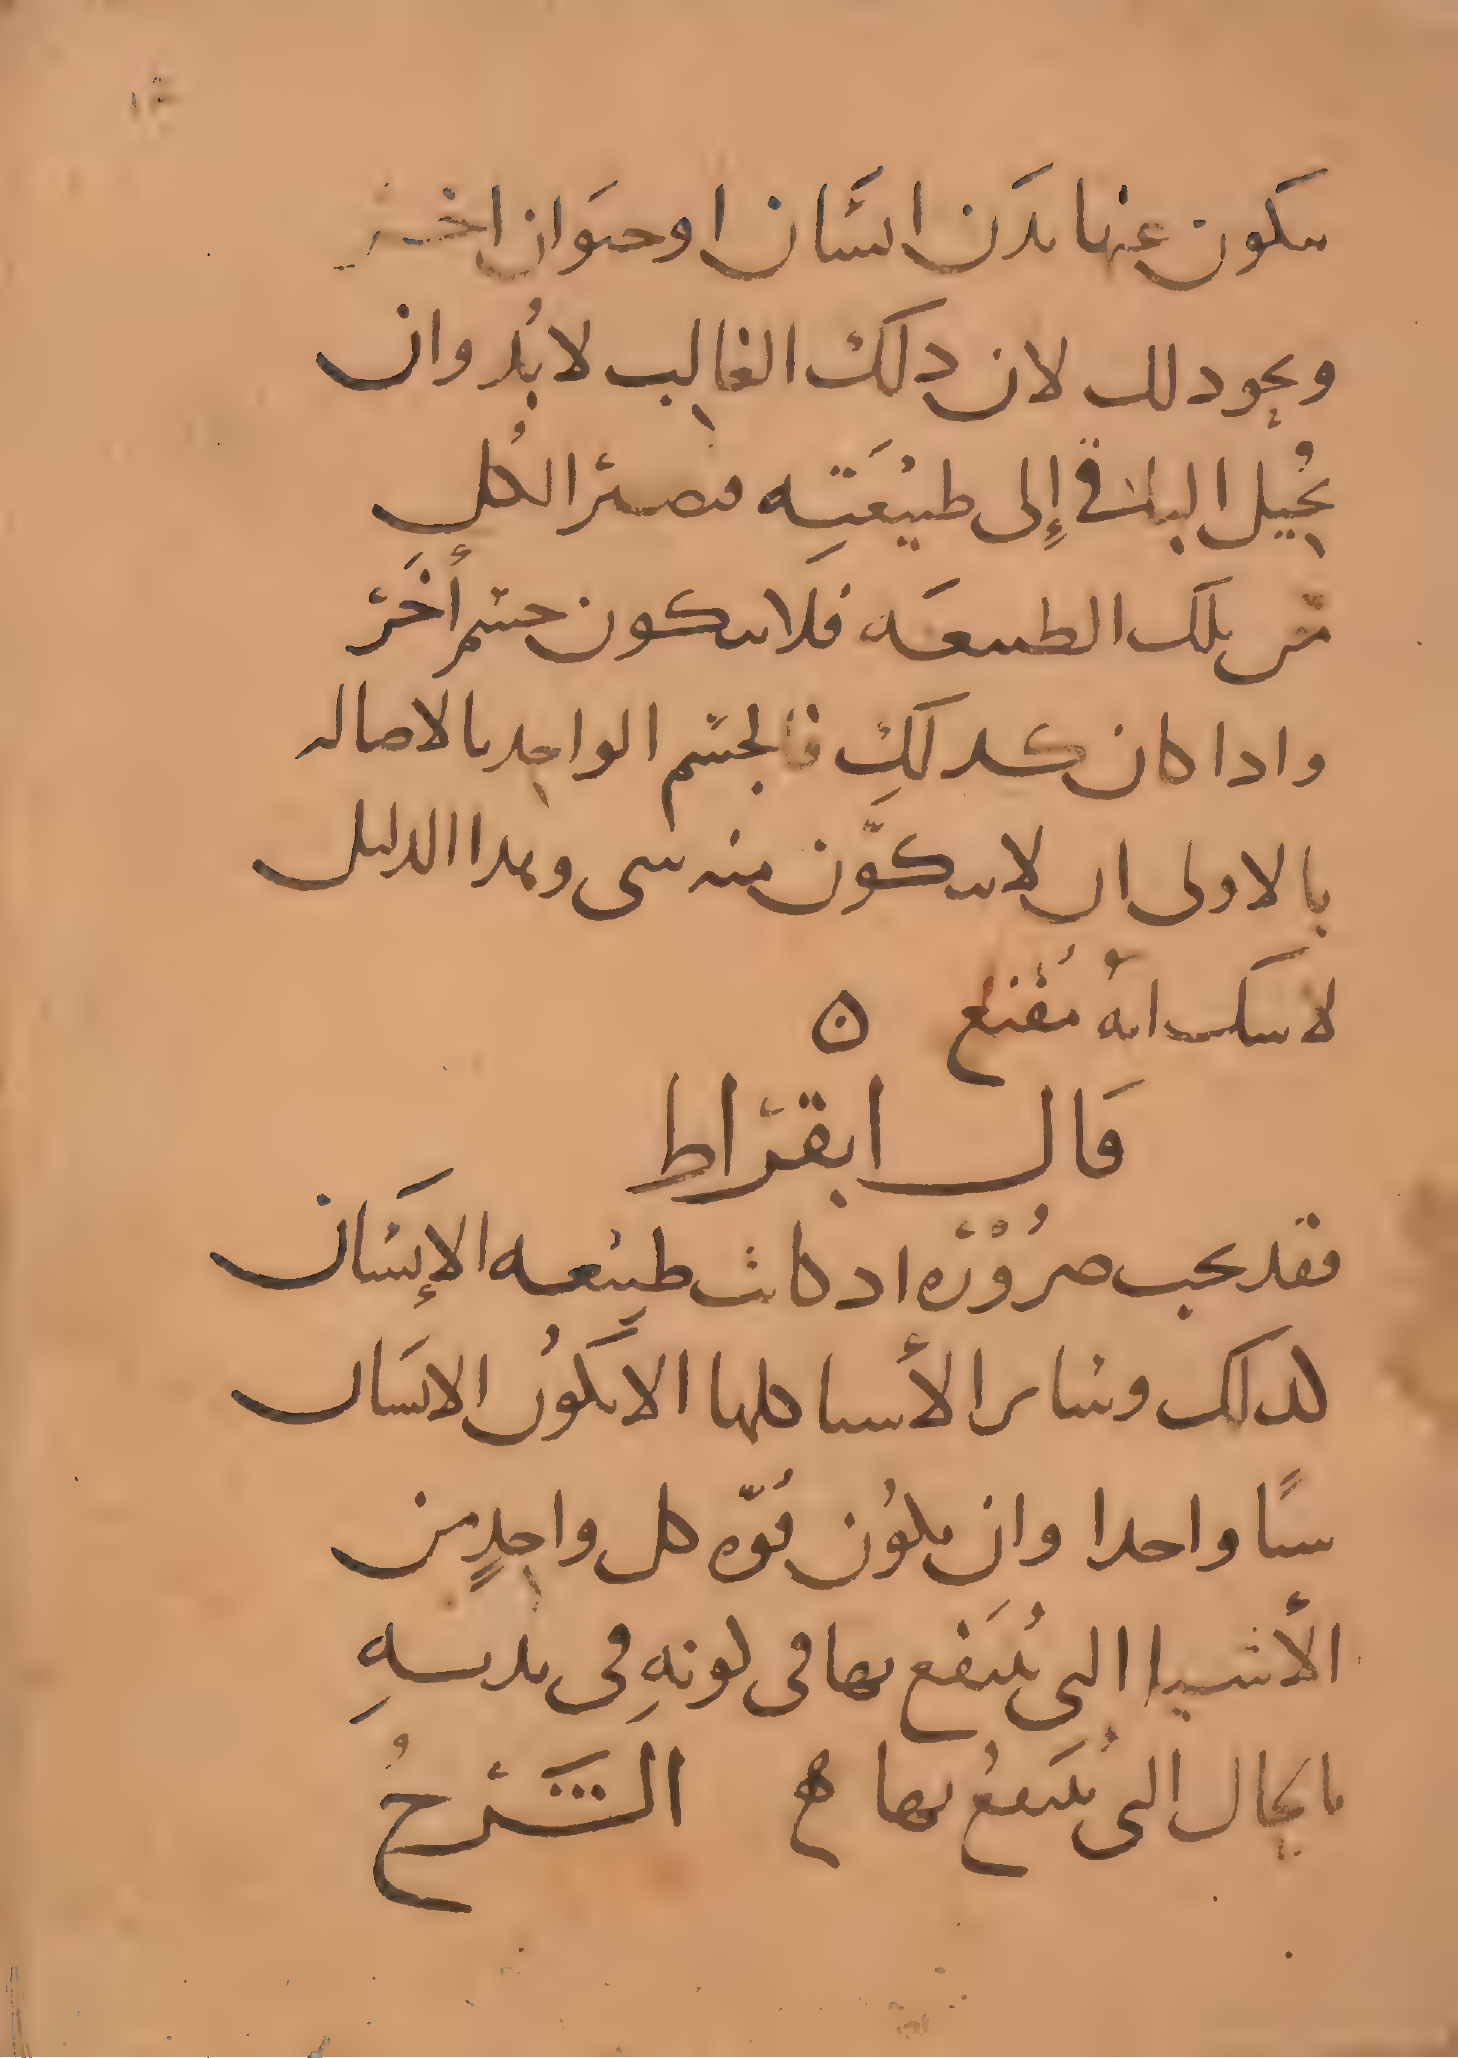 يتكون عنها بدن انسان او حيوان اخر
ونحو ذلك لان ذلك الغالب لا بُد وان
يُحيل الباقي إلى طبيعَتِه فيصير الكُل
من تلك الطبيعَه فلا يتكون جسم أخَر
واذا كان كذلك فالجسم الواحد بالاصاله
بالاولى ان لا يتكوّن منه شي وهذا الدليل
لا شك انهُ مُقنع ٥
قَال ابقرَاط
فقد يجب ضرُوْرَه اذ كانت طبيْعه الإنسَان
كذلك وسائر الأشيا كلها الا يكوُن الانسَان
شيًا واحدا وان يكوُن قُوّه كل واحدٍ من
الأشيا التي يُنتَفع بها في كونهِ في بدنهِ
بالحال التي يُنتَفعُ بها ه الشَرحُ